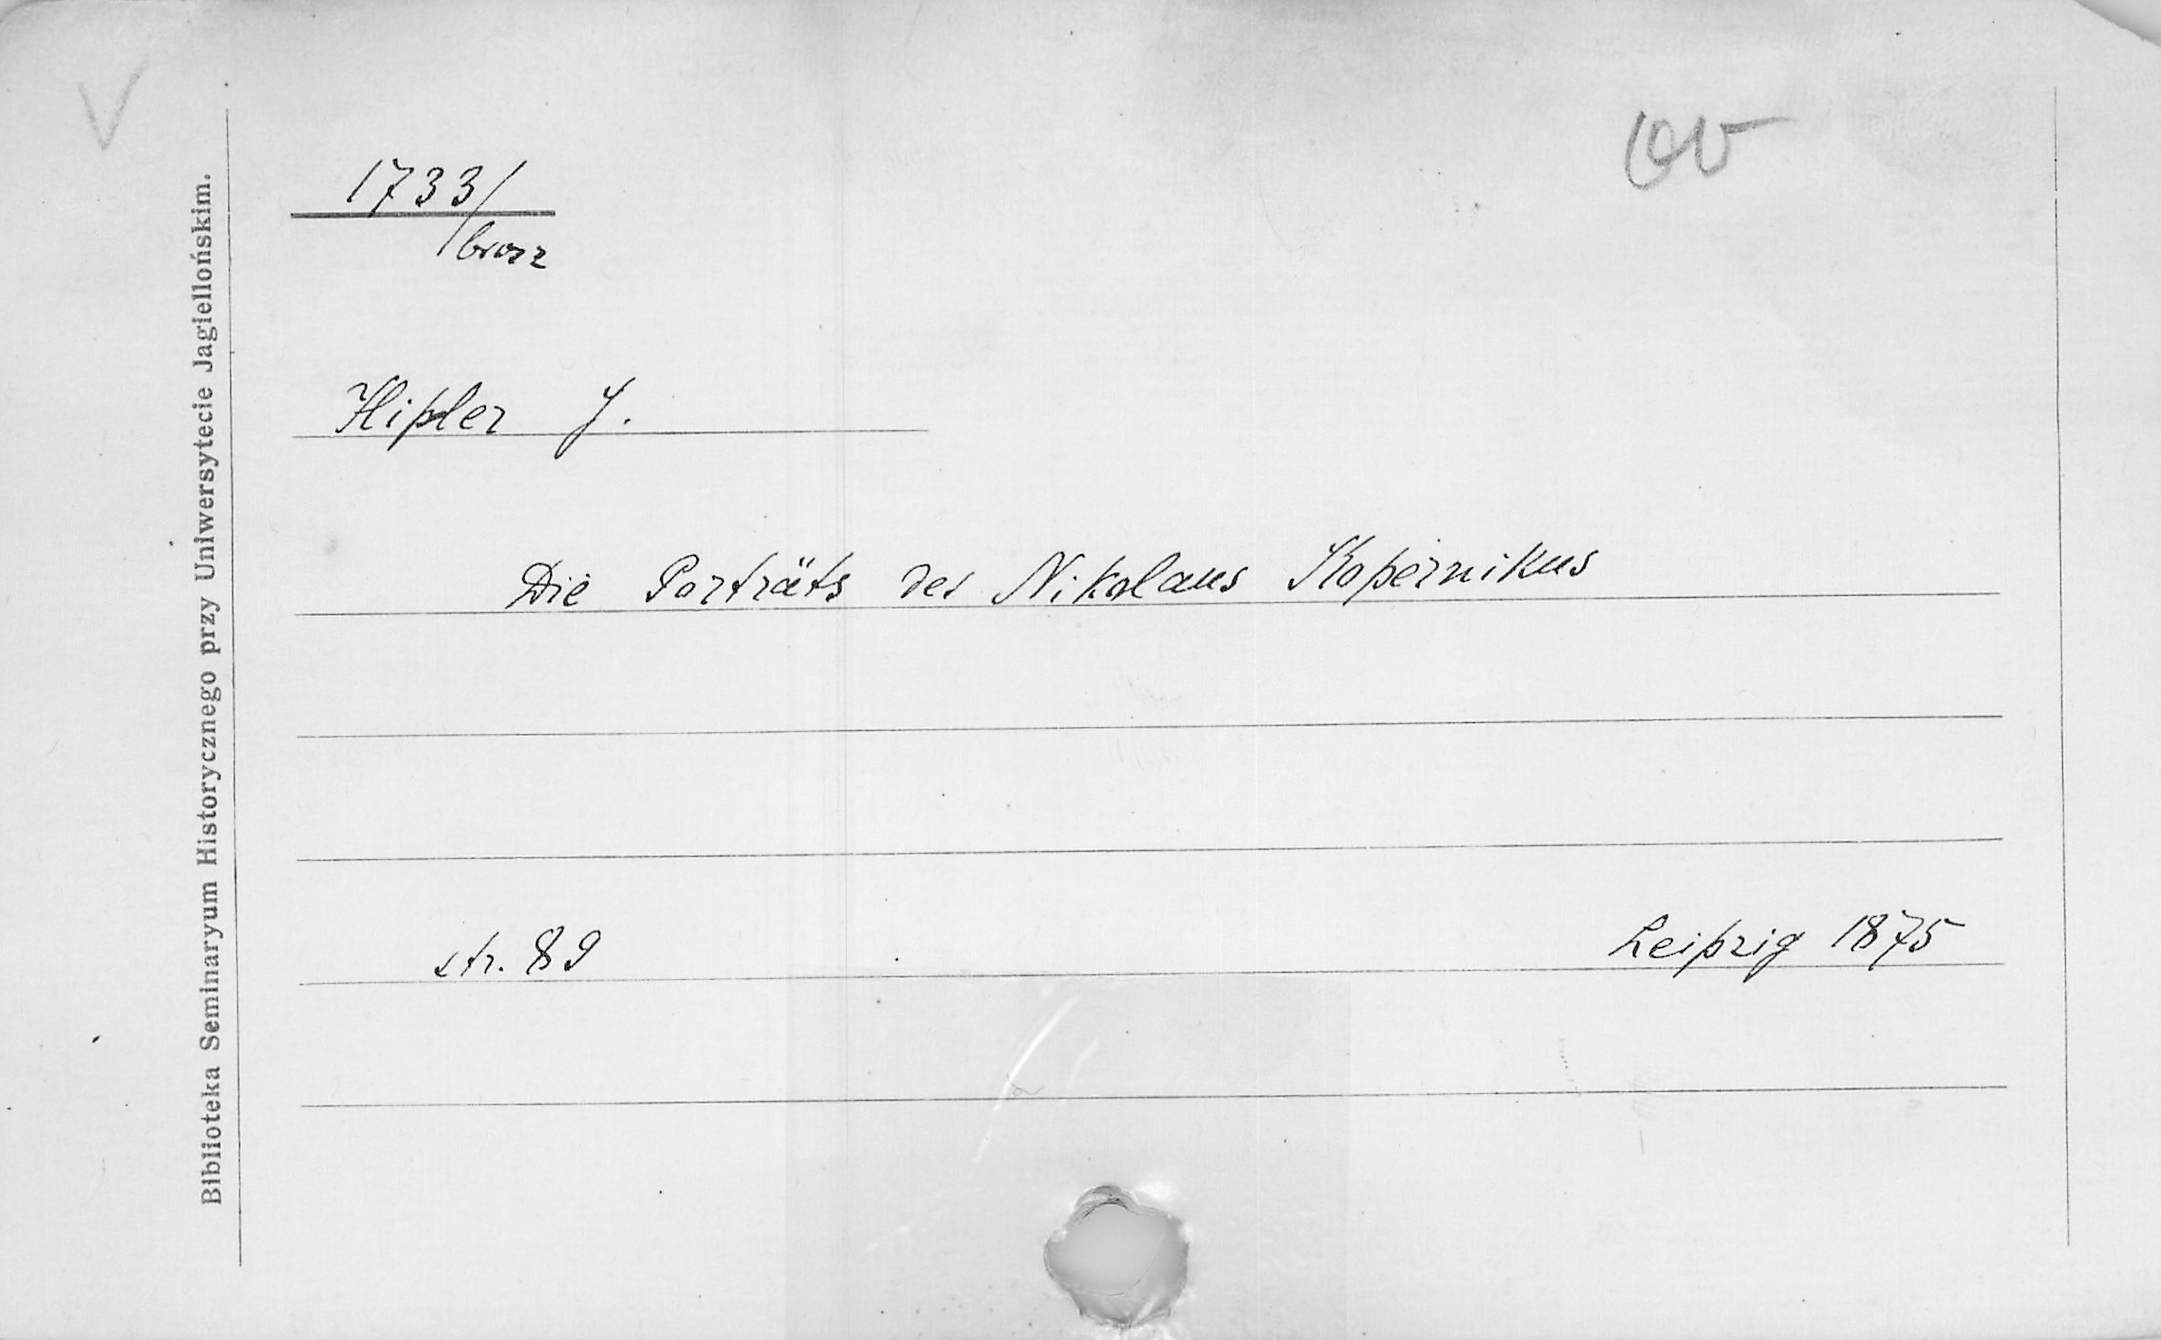 V
1733/
brosz
Hipler J.
Die Porträts des Nikolaus Kopernikus
str. 89
Leipzig 1875
Biblioteka Seminaryum Historycznego przy Uniwersytecie Jagiellońskim.